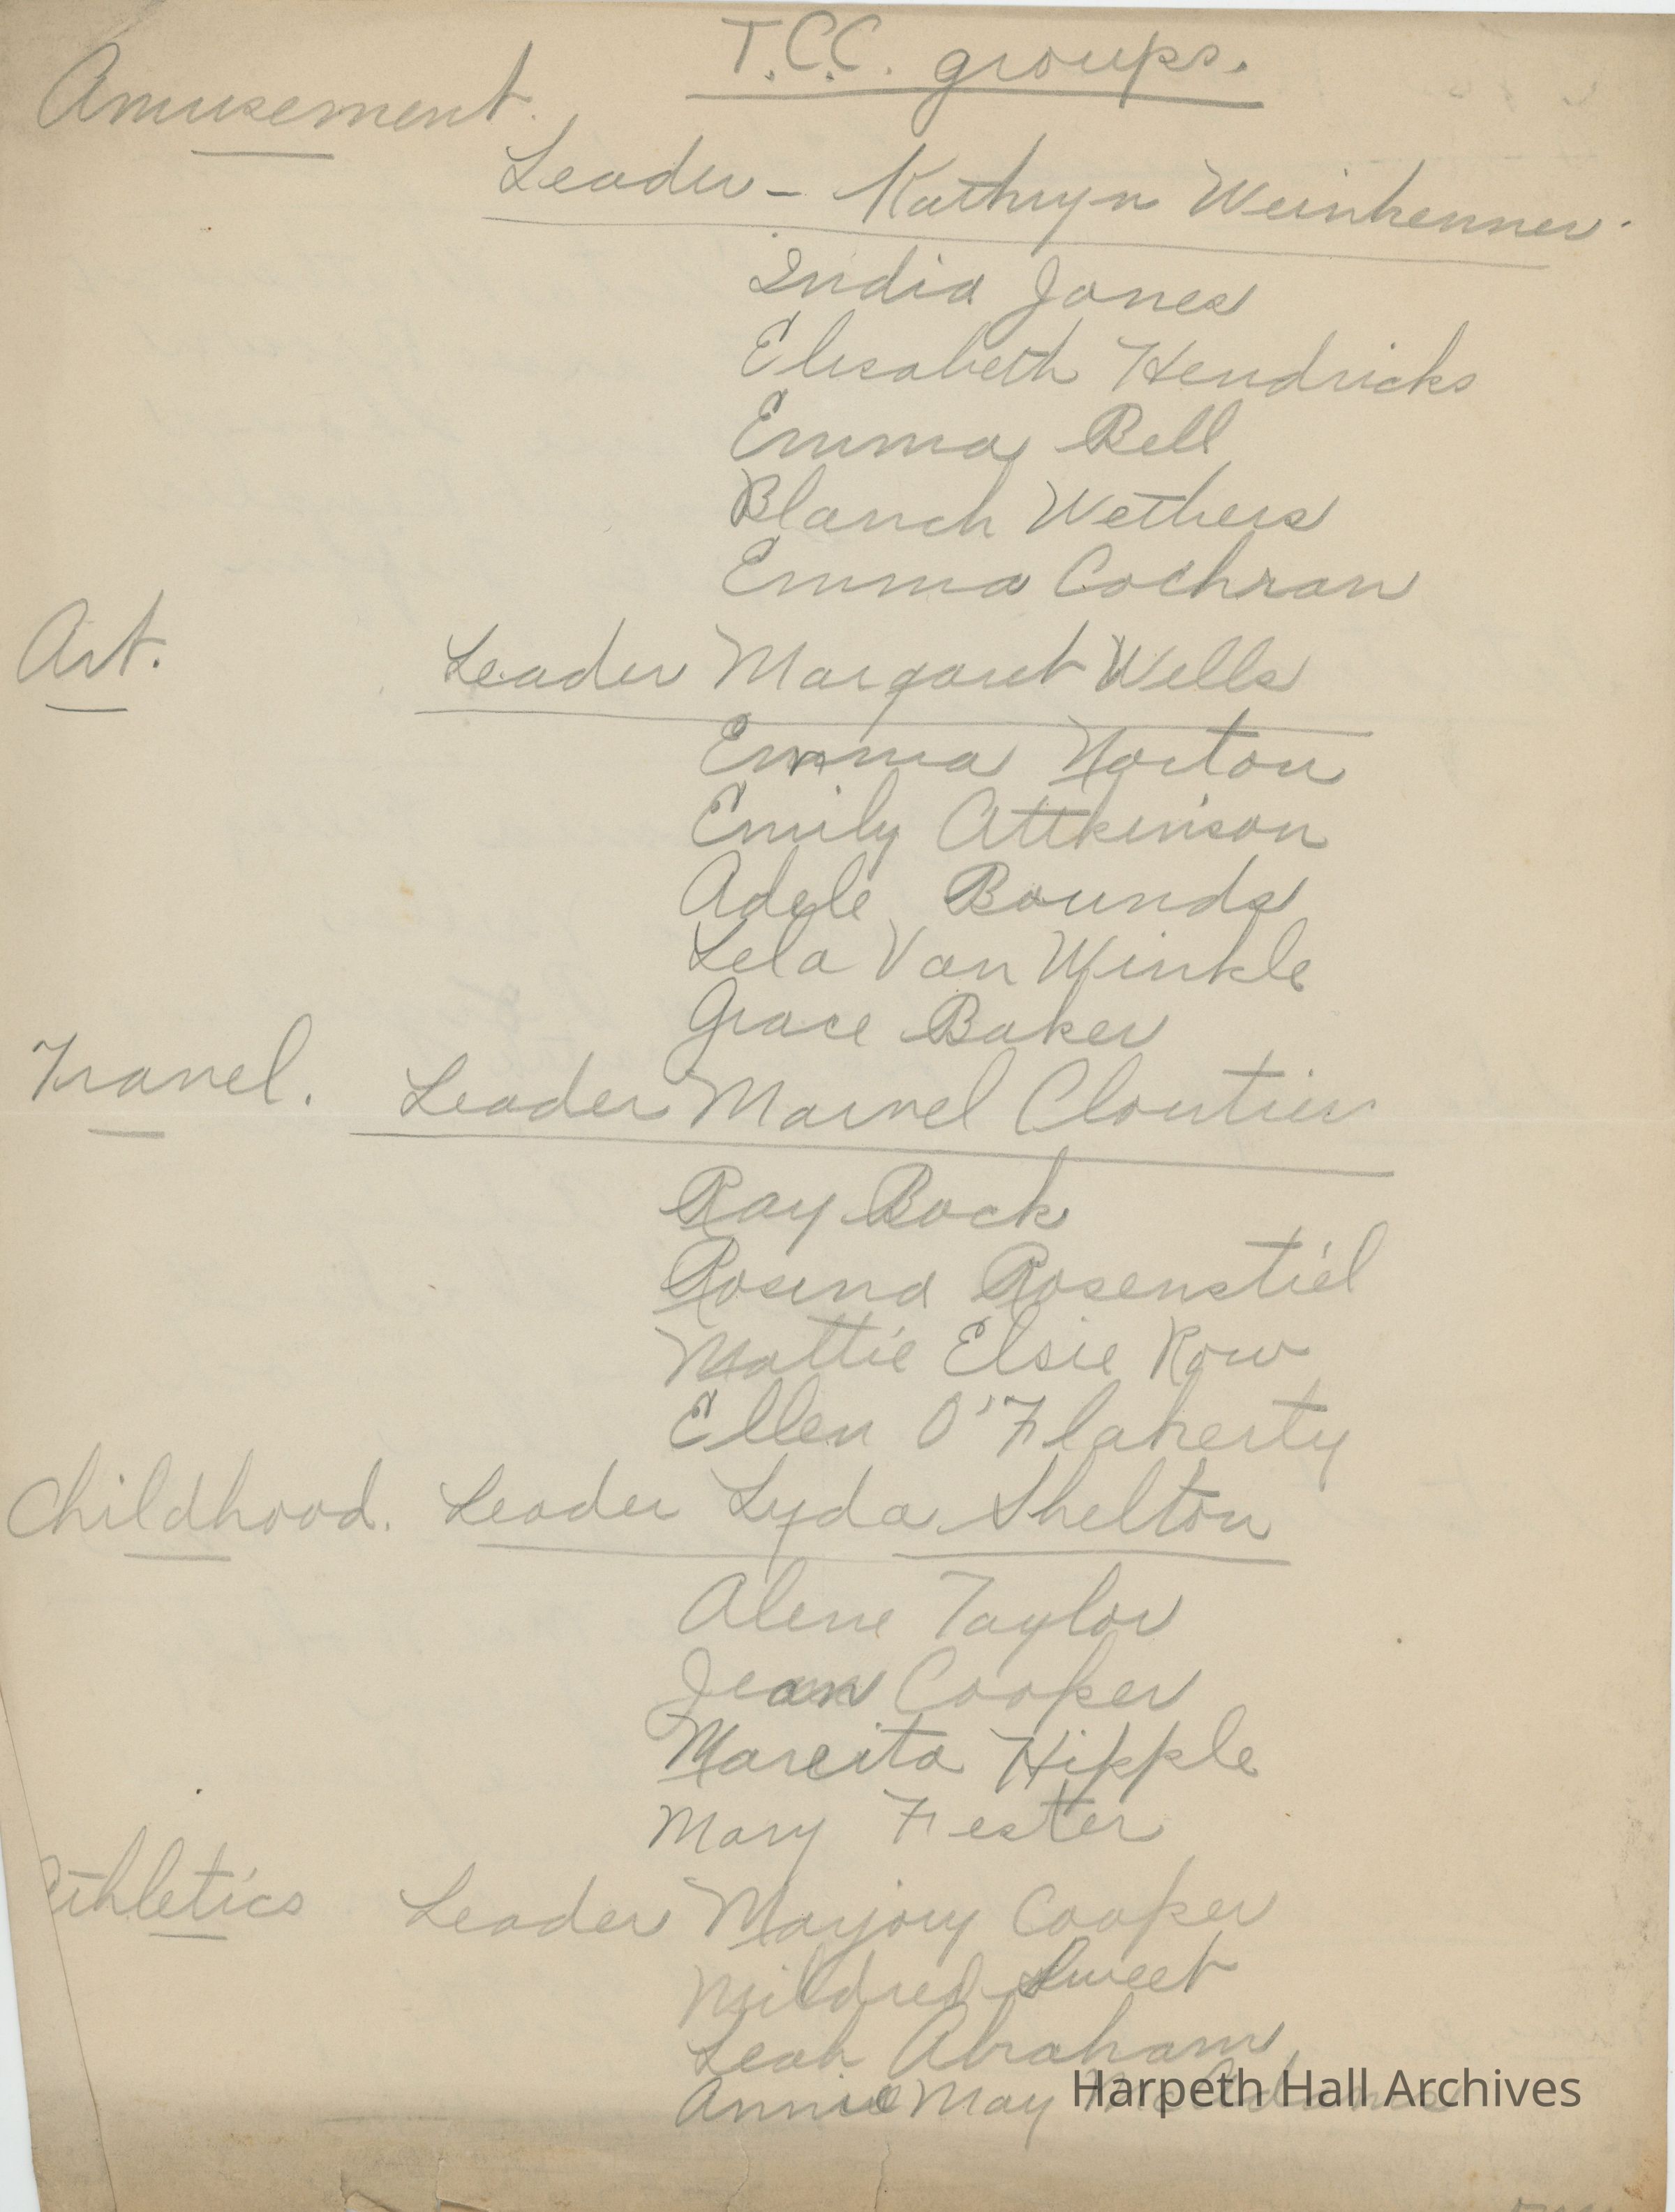 T.C.C. groups.
Amusement.
Leader - Kathryn Weinkenner.
India Jones
Elisabeth Hendricks
Emma Bell
Blanch Wethers
Emma Cochran
Art. Leader Margaret Wells
Emma Norton
Emily Attkinson
Adele Bounds
Lela Van Winkle
Grace Baker
Travel. Leader Marvel Cloutier
Ray Bock
Rosina Rosenstiel
Mattie Elsie Row
Ellen O'Flaherty
Childhood. Leader Lyda Shelton
Alene Taylor
Jean Cooper
Marcita Hipple
Mary Fester
Athletics Leader Marjory Cooper
Mildred Sweet
Leah Abraham
Annie May
Harpeth Hall Archives